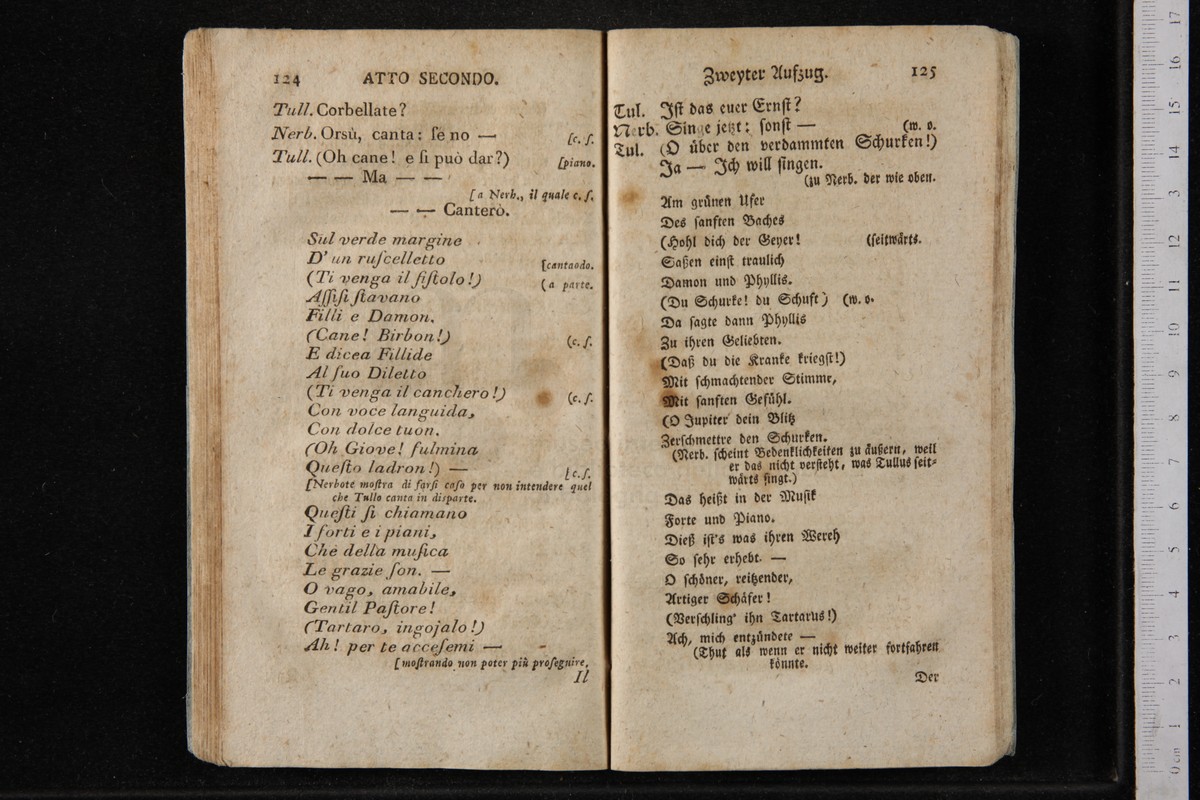 124 ATTO SECONDO.
Tull. Corbellate?
Nerb. Orsù, canta: ſe no — [c. ſ.
Tull. (Oh cane! e ſi può dar?) [piano.
— — Ma — —
[a Nerb., il quale c. ſ.
— — Canterò.
Sul verde margine
D' un ruſcelletto [cantaodo.
(Ti venga il fiſtolo!) (a parte.
Aſſiſi ſtavano
Filli e Damon.
(Cane! Birbon!) (c. ſ.
E dicea Fillide
Al ſuo Diletto
(Ti venga il canchero!) (c. ſ.
Con voce languida,
Con dolce tuon.
(Oh Giove! fulmina
Queſto ladron!) — [c. ſ.
[Nerbote moſtra di farſi caſo per non intendere quel
che Tullo canta in disparte.
Queſti ſi chiamano
I forti e i piani,
Chè della muſica
Le grazie ſon. —
O vago, amabile,
Gentil Paſtore!
(Tartaro, ingojalo!)
Ah! per te acceſemi —
[moſtrando non poter più proſeguire.
Il
Zweyter Aufzug. 125
Tul. Iſt das euer Ernſt?
Nerb. Singe jetzt: ſonſt — (w. o.
Tul. (O über den verdammten Schurken!)
Ja — Ich will ſingen.
(zu Nerb. der wie oben.
Am grünen Ufer
Des ſanften Baches
(Hohl dich der Geyer! (ſeitwärts.
Saßen einſt traulich
Damon und Phyllis.
(Du Schurke! du Schuft) (w. o.
Da ſagte dann Phyllis
Zu ihren Geliebten.
(Daß du die Kranke kriegſt!)
Mit ſchmachtender Stimmr,
Mit ſanften Gefühl.
(O Jupiter dein Blitz
Zerſchmettre den Schurken.
(Nerb. ſcheint Bedenklichkeiten zu äußern, weil
er das nicht verſteht, was Tullus ſeit⸗
wärts ſingt.)
Das heißt in der Muſik
Forte und Piano.
Dieß iſt's was ihren Wereh
So ſehr erhebt. —
O ſchöner, reitzender,
Artiger Schäfer!
(Verſchling' ihn Tartarus!)
Ach, mich entzündete —
(Thut als wenn er nicht weiter fortfahren
könnte.
Der
0 cm 1 2 3 4 5 6 7 8 9 10 11 12 13 14 15 16 17